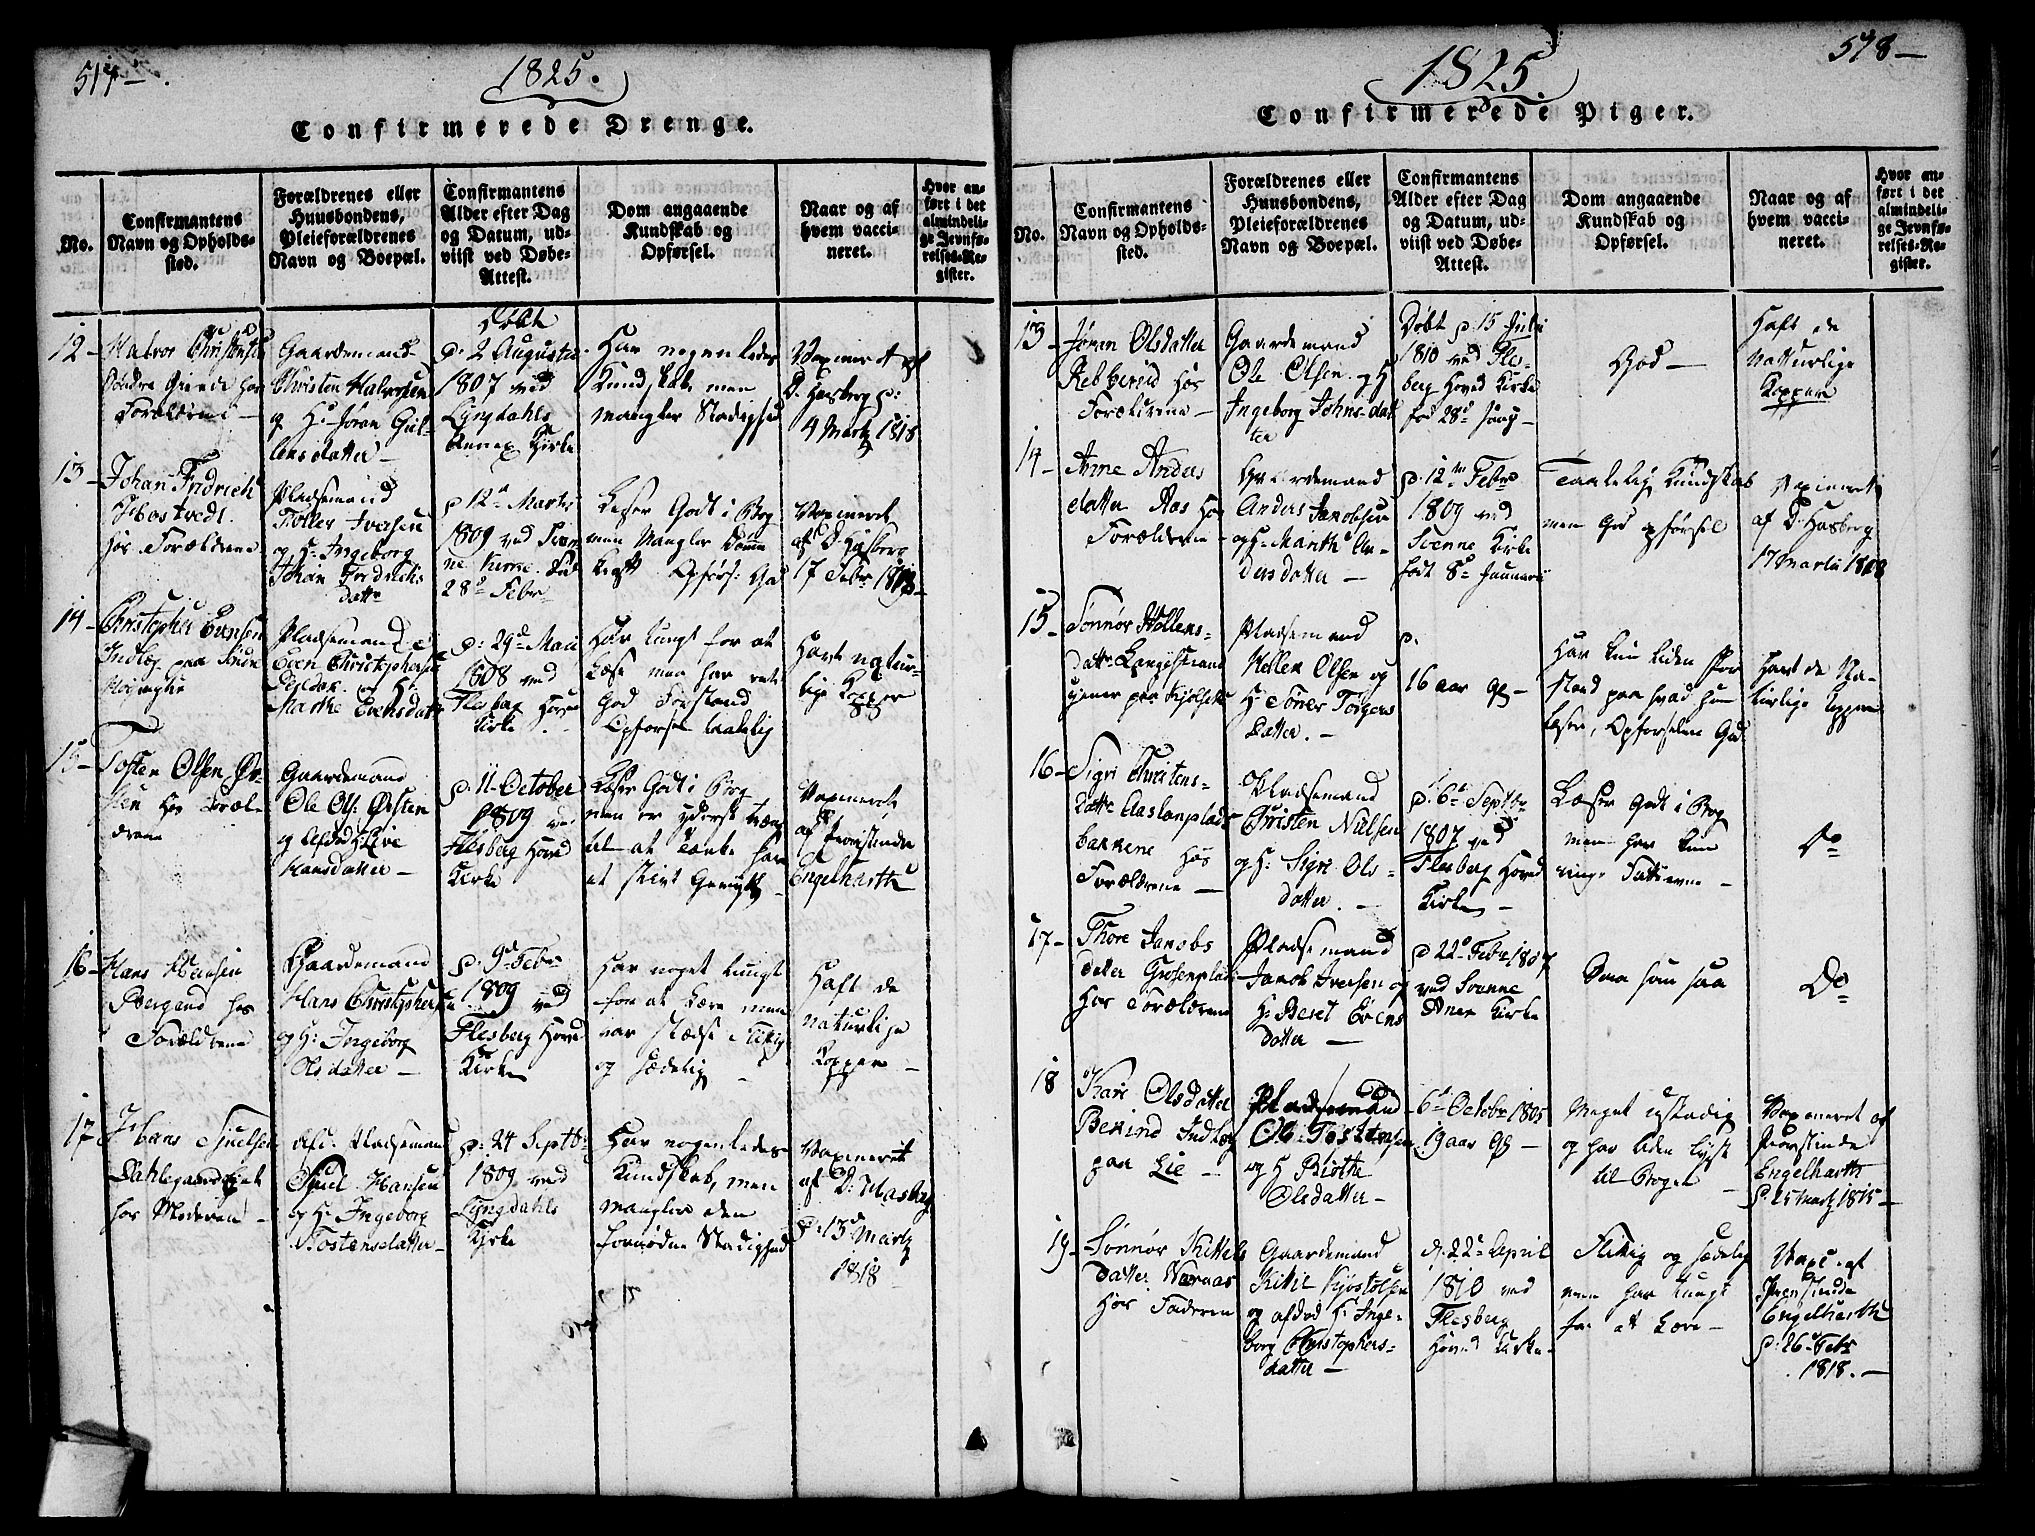 517-
1825.
Confirmerede Drenge.
No.
Confirmantens
Navn og Opholds-
sted.
Forældrenes eller
Huusbondens,
Pleieforældrenes
Navn og Boepæl.
Confirmantens
Alder efter Dag
og Datum, ud-
viist ved Døbe-
Attest.
Dom angaaende
Kundskab og
Opførsel.
Naar og af
hvem vacci-
neret.
Hvor an-
ført i det
almindeli-
ge Jevnfø-
relses-Re-
gister.
12-
Halvor Christens
hos
Forældrene
Gaardemand
Christen Halvorsen
og H: Jøran Gul-
lensdatter-
Døbt
d: 2 Augusti
1807 ved
Lyngdahls
Annex Kirke
Har nogenledes
Kundskab men
mangler Stadighed
Vaxineret af
D. Hasberg d:
4 Martz 1818
13-
Johan Fridrich
Hostvedt.
hos Forældrene
Pladsemand
Toller Iversen
og H: Ingeborg
Johan Fredrichs
datt
d 12 Martii
1809 ved Sven-
ne Kirke
28 Febr
Læser Godt i Bog
men Mangler
Opførs: God
Vaxineret
af D Hasberg
17 Febr 1818-
14-
Christopher Evensen
Indlæg paa
Pladsemand
Even Christophersen
og H:
Marthe Evensdatt
d: 29 Maii
1808 ved
Flesberg Hoved
Kirke
Har tungt for at
læse men har
God Forstand
Opførsel taalelig
Havt natur-
lige Kopper
15-
Tosten Olsen Øv-
hos Foræl-
drene
Gaardemand
Ole Ols: Østen
og Afdød H Live
Hansdatter-
d. 11 October
1809 ved
Flesberg Hoved
Kirke
Læser Godt i Bog
men er yderst
at Tænke har
et stivt Gemyt
Vaxineret
af Provstinde
Engelharth
16-
Hans Hansen
Bergerud hos
Forældrene
Gaardemand
Hans Christophersen
og H: Ingeborg
Olsdatter-
d. 9 Febr
1809 ved
Flesberg Hoved
Kirke
Har noget tungt
for at Lære men
var stædse flittig
og sædelig-
Haft de
naturlige
Kopper-
17-
Hans Sjulsen
hos Moderen-
Afd. Pladsemand
Sjul Hansen
og H: Ingeborg
Tostensdatter-
d: 24 Septb
1809 ved
Lyngdahls
Kirke
Har nogenledes
Kundskab, men
mangler den
fornødne Stadighed
Vaxineret
af D: Hasberg
d: 13 Martz
1818
578-
1825.
Confirmerede Piger.
No.
Confirmantens
Navn og Opholds-
sted.
Forældrenes eller
Huusbondens,
Pleieforældrenes
Navn og Boepæl.
Confirmantens
Alder efter Dag
og Datum, ud-
viist ved Døbe-
Attest.
Dom angaaende
Kundskab og
Opførsel.
Naar og af
hvem vacci-
neret.
Hvor an-
ført i det
almindeli-
ge Jevnfø-
relses-Re-
gister.
13-
Jøran Olsdatter
hos
Forældrene-
Gaardemand
Ole Olsen og H
Ingeborg Johnsdat-
ter
Døbt d. 15 Julii
1810 ved Fles-
berg Hoved Kirke
fød 28
God-
Haft de
Natturlige
Kopper
14-
Anne Anders
datter Aas hos
Forældrene-
Gaardemand
Anders Jacobsen
og H: Marthe An-
dersdatter-
d. 12 Febr
1809 ved
Svenne Kirke
født 8 Januarii
Taalelig Kundskab
men God opførsel
Vaxineret
af D: Hasberg
17 Martii 1818
15-
Sønnøv Hellens-
datt. Langestrand
tjener paa
Pladsemand
Hellen Olsen og
H Tønes Torgers
datter.-
d.
16 aar g-
Har kun liden For
stand paa hvad hun
læser, Opførselen God.
Havt de Na-
turlige Kopper
16-
Sigri Christens-
datt. Aaslandplads
bakkene hos
Forældrene-
Pladsemand
Christen Nielsen
og H: Sigri Ols-
datter.-
d: 6 Septbr
1807 ved
Flesberg Hoved
Kirke-
Læser Godt i Bog
men har kun
ringe Fatteevne-
Do
17-
Thore Jacobs
datter
hos Forældrene
Pladsemand
Jacob Iversen og
H: Beret Evens
datter-
d 22 Febr 1807
ved Svenne
Annex Kirke
Saa som saa
Do
18
Kari Olsdatter
Indlæg
paa Lie-
Pladsemand
Ole Tostensen
og H Birthe
Olsdatter-
6 Octobr 1805
19 aar g-
Meget ustadig
og har liden lyst
til Bogen-
Vaxineret af
Provstinde
Engelharth
d. 25 Martz 1815-
19-
Sønnøv Kittels
datter Næraas
hos Faderen
Gaardemand
Kittil Kjøstolsen
og afdød H: Inge-
borg Christophers-
datter-
d. 22 April
1810 ved
Flesberg
Hoved Kirke-
Flittig og sædelig
men har tungt
for at Lære-
Vaxi. af
Provstinde
Engelharth
d: 26 Febr
1818.-